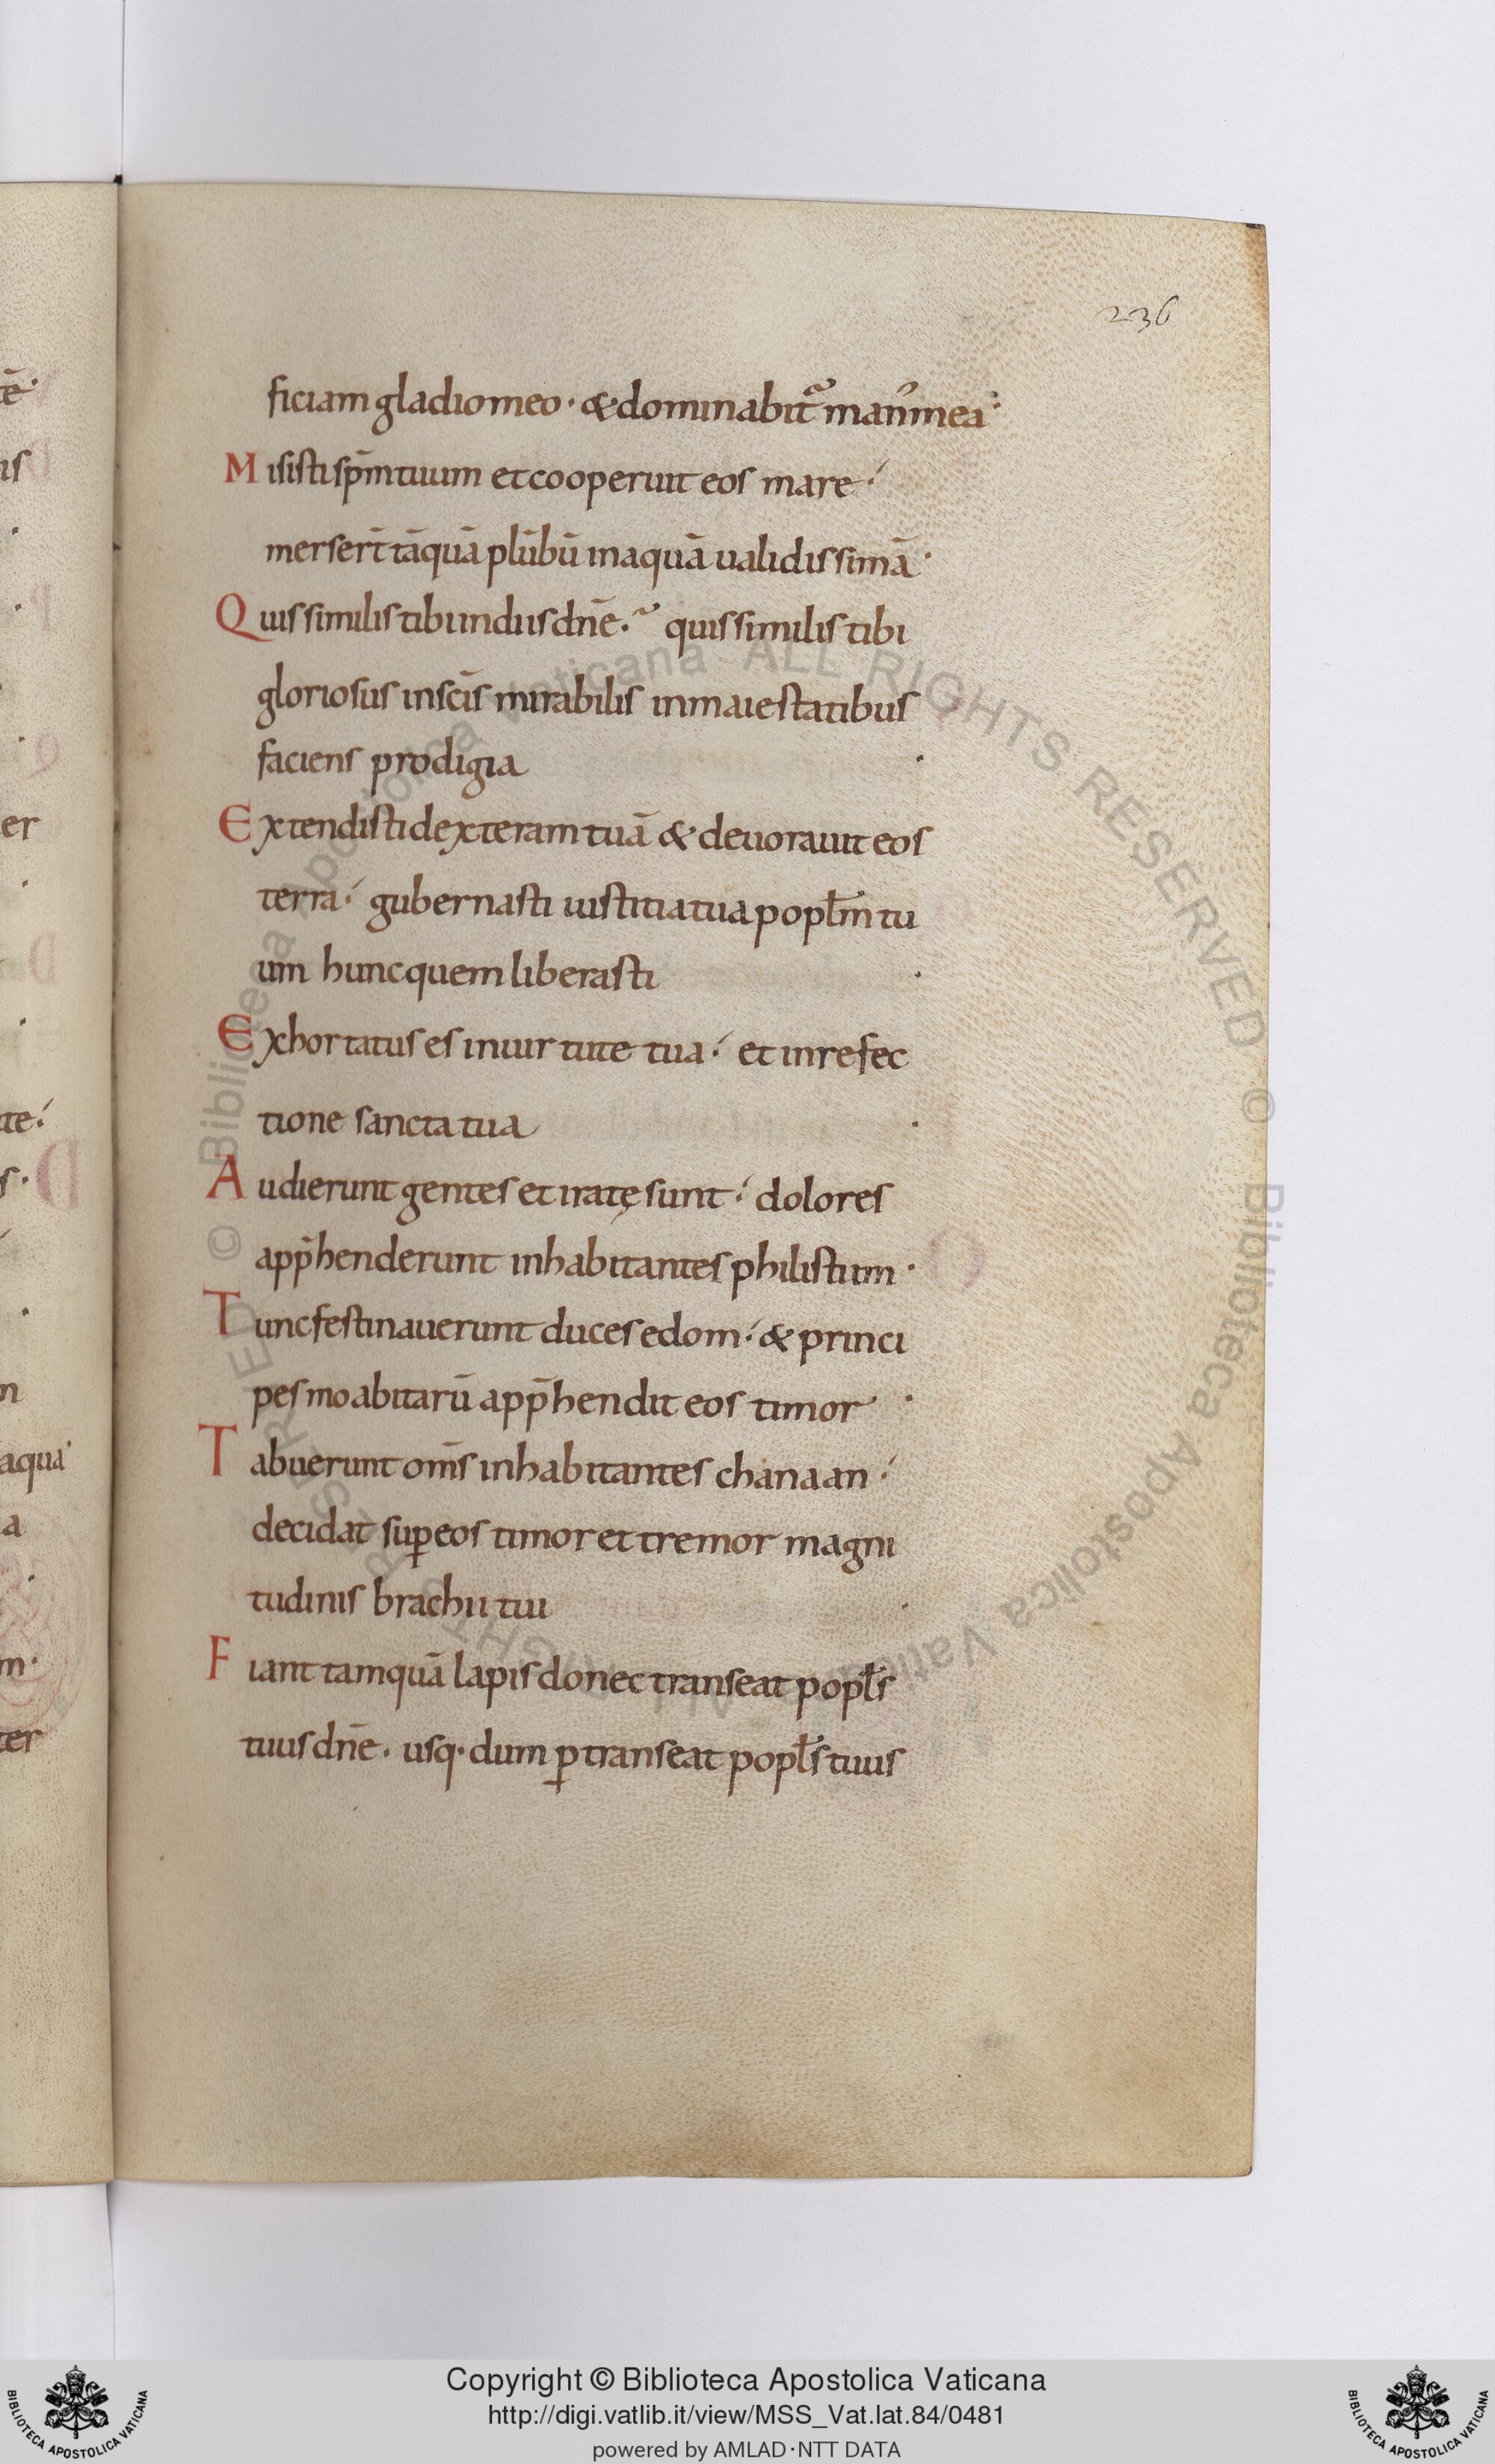 236
ficiam gladio meo · & dominabit᷑ man᷒ mea ·
Misisti sp̄m tuum et cooperuit eos mare ·́
merser̄t tāquā plūbū in aquā ualidissimā ·
Quis similis tibi in diis dn̄e ·̃ quis similis tibi
gloriosus in sc̄is mirabilis in maiestatibus
faciens prodigia ·
Extendisti dexteram tuā & deuorauit eos
terra ·́ gubernasti iustitia tua popl̄m tu
um hunc quem liberasti ·
Exhortatus es in uirtute tua ·́ et in refec
tione sancta tua ·
Audierunt gentes et iratę sunt ·́ dolores
app̄henderunt inhabitantes philistiim ·
Tunc festinauerunt duces edom ·́ & princi
pes moabitarū app̄hendit eos timor ·
Tabuerunt om̄s inhabitantes chanaan ·́
decidat sup̱ eos timor et tremor magni
tudinis brachii tui ·
Fiant tamquā lapis donec transeat popl̄s
tuus dn̄e · usq· dum p̱transeat popl̄s tuus
Copyright © Biblioteca Apostolica Vaticana
http://digi.vatlib.it/view/MSS_Vat.lat.84/0481
powered by AMLAD·NTT DATA